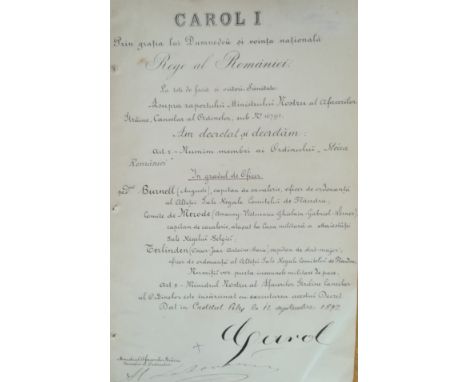 CAROL I
Prin grația lui Dumnedeŭ și voința națională
Rege al României.
La toți de față și viitori, Sănătate.
Asupra raportului Ministrului Nostru al Afacerilor
Străine, Cancelar al Ordinelor, sub No
Am decretat și decretăm:
Art. 1 - Numim membri ai Ordinului „Steaua
României"
In gradul de Oficer
Burnell (Auguste), capitan de cavalerie, oficer de ordonanță
al Alteței Sale Regale Comitelui de Flandra,
Comite de Merode (Ghislain Gabriel
capitan de cavalerie, atașat la Casa militară a Maiestăței
Sale Regelui Belgiei,
Terlinden capitan de stat-major,
oficer de ordonanță al Alteței Sale Regale Comitelui de Flandra.
Numiții vor purta insemnele militare de pace.
Art. 2 - Ministrul Nostru al Afacerilor Străine Cancelar
al Ordinelor este însărcinat cu executarea acestui Decret
Dat in Castelul la 12 1897
Carol
Ministrul Afacerilor Străine
Cancelar al Ordinelor